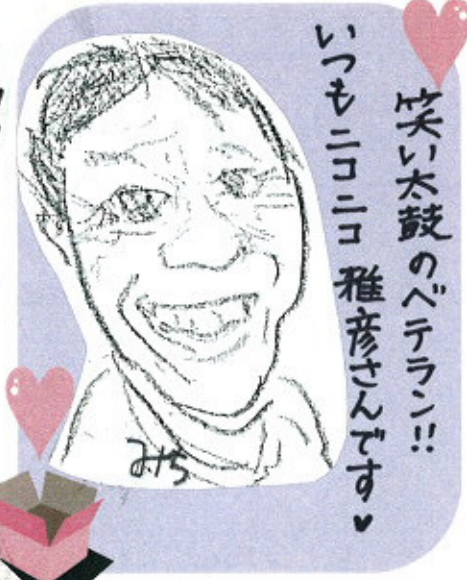 笑い太鼓のベテラン!!
いつもニコニコ 雅彦さんです♥
みち